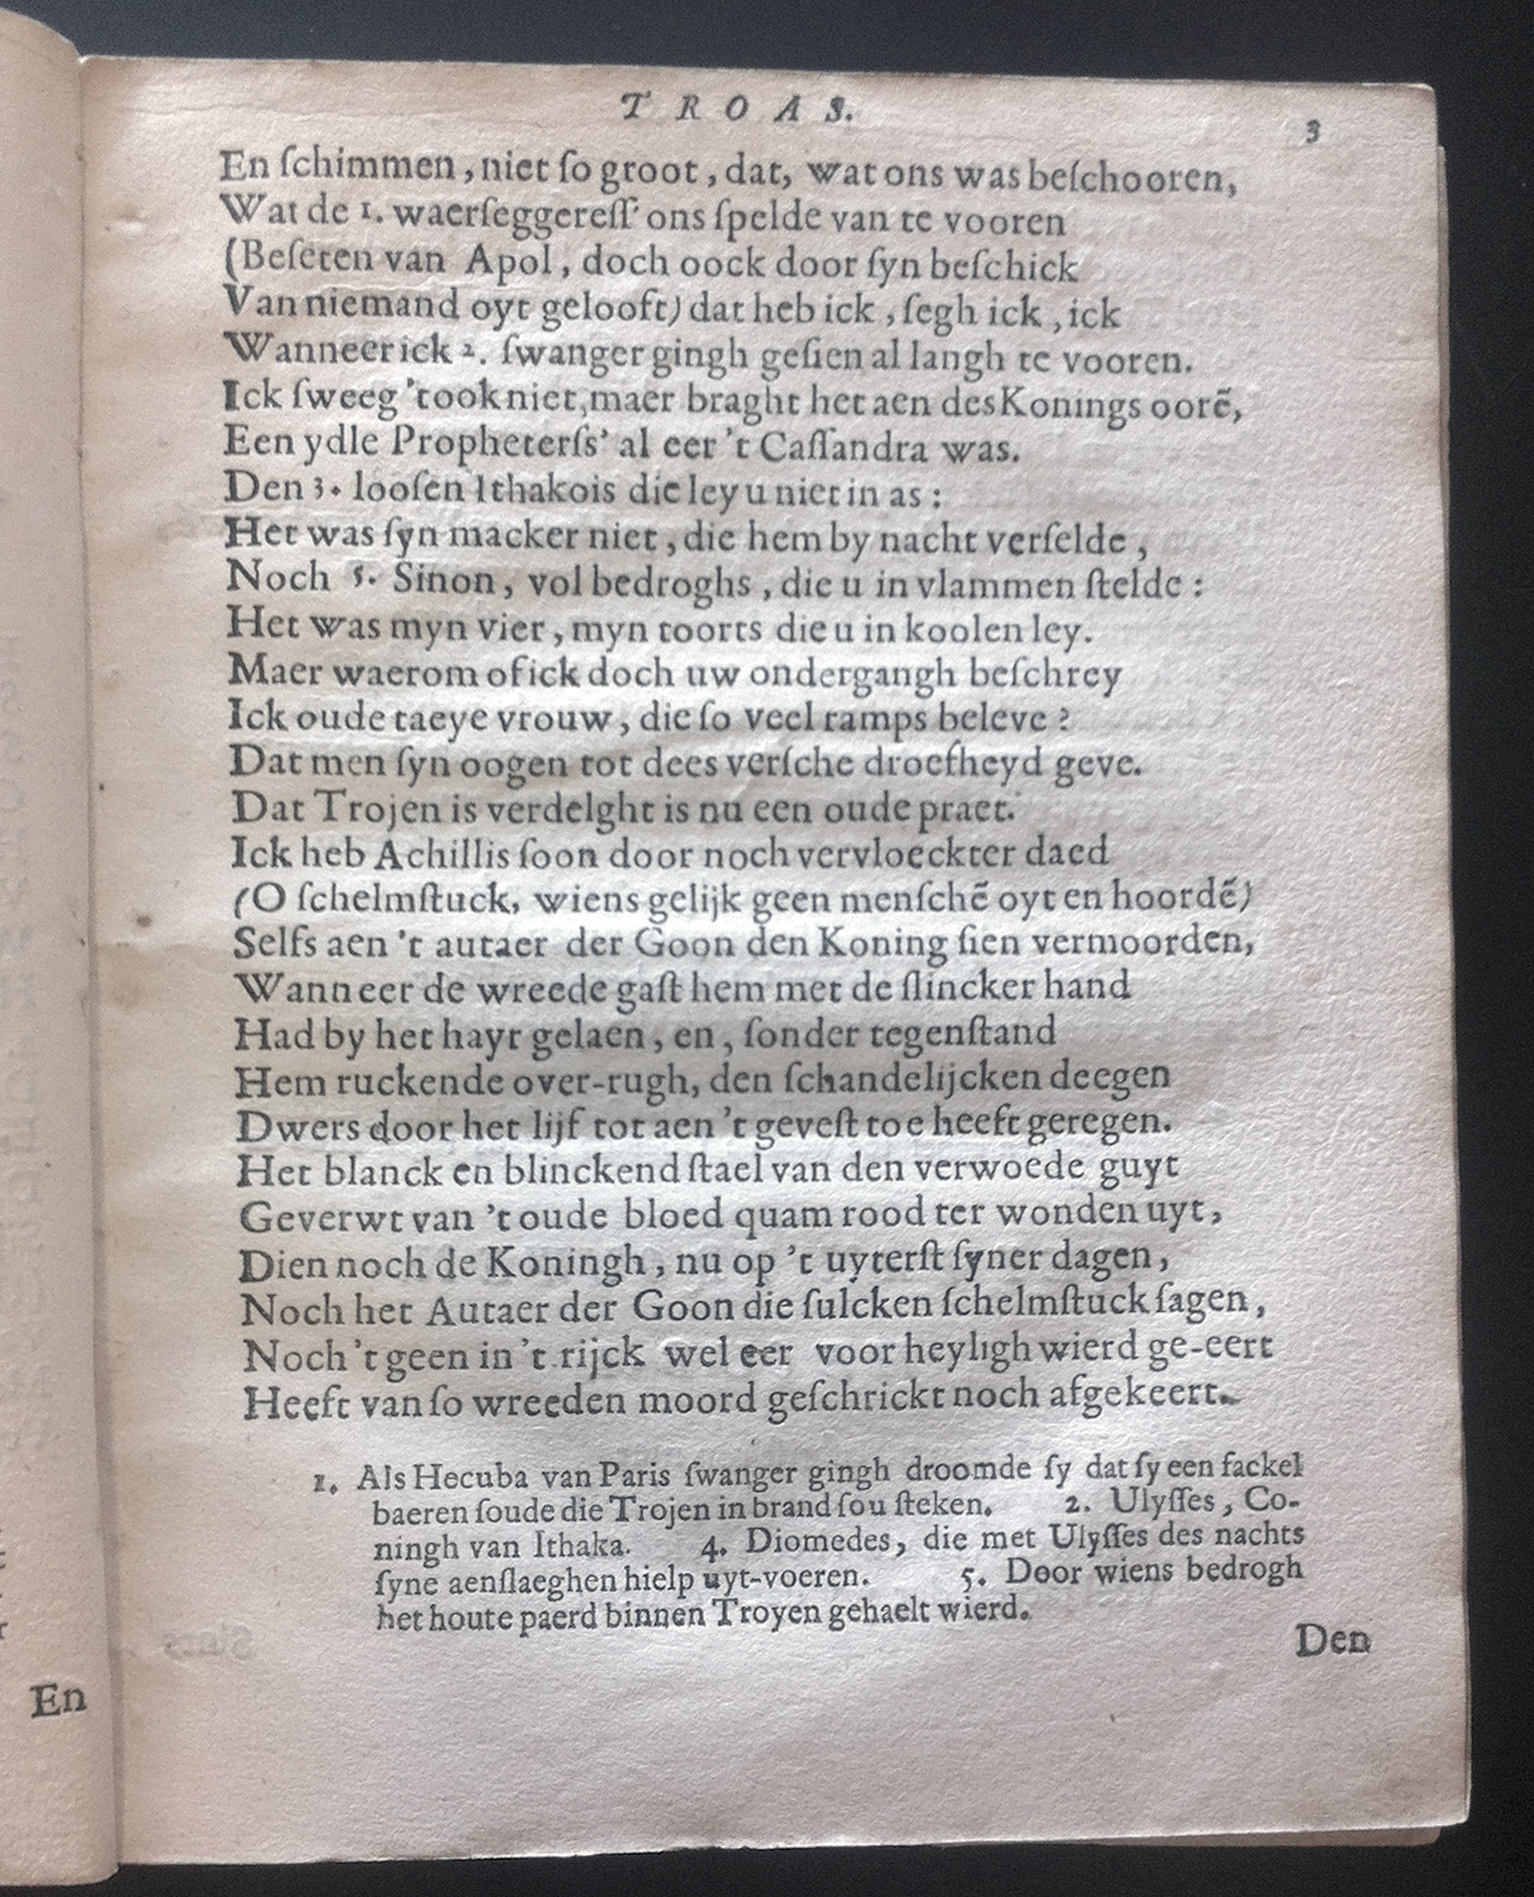 TROAS.
3
En ſchimmen, niet ſo groot, dat, wat ons was beſchooren,
Wat de 1. waerſeggereſſ' ons ſpelde van te vooren
(Beſeten van Apol, doch oock door ſyn beſchick
Van niemand oyt gelooft) dat heb ick, ſegh ick, ick
Wanneer ick 2. ſwanger gingh geſien al langh te vooren.
Ick ſweeg 't ook niet, maer braght het aen des Konings oorẽ,
Een ydle Propheterſs' al eer 't Caſſandra was.
Den 3. looſen Ithakois die ley u niet in as:
Het was ſyn macker niet, die hem by nacht verſelde,
Noch 5. Sinon, vol bedroghs, die u in vlammen ſtelde:
Het was myn vier, myn toorts die u in koolen ley.
Maer waerom of ick doch uw ondergangh beſchrey
Ick oude taeye vrouw, die ſo veel ramps beleve?
Dat men ſyn oogen tot dees verſche droefheyd geve.
Dat Trojen is verdelght is nu een oude praet.
Ick heb Achillis ſoon door noch vervloeckter daed
(O ſchelmſtuck, wiens gelijk geen menſchẽ oyt en hoordẽ)
Selfs aen 't autaer der Goon den Koning ſien vermoorden,
Wanneer de wreede gaſt hem met de ſlincker hand
Had by het hayr gelaen, en, ſonder tegenſtand
Hem ruckende over-rugh, den ſchandelijcken deegen
Dwers door het lijf tot aen 't geveſt toe heeft geregen.
Het blanck en blinckend ſtael van den verwoede guyt
Geverwt van 't oude bloed quam rood ter wonden uyt,
Dien noch de Koningh, nu op 't uyterſt ſyner dagen,
Noch het Autaer der Goon die ſulcken ſchelmſtuck ſagen,
Noch 't geen in 't rijck wel eer voor heyligh wierd ge-eert
Heeft van ſo wreeden moord geſchrickt noch afgekeert.
1. Als Hecuba van Paris ſwanger gingh droomde ſy dat ſy een fackel
baeren ſoude die Trojen in brand ſou ſteken. 2. Ulyſſes, Co-
ningh van Ithaka. 4. Diomedes, die met Ulyſſes des nachts
ſyne aenſlaeghen hielp uyt-voeren. 5. Door wiens bedrogh
het houte paerd binnen Troyen gehaelt wierd.
Den
En